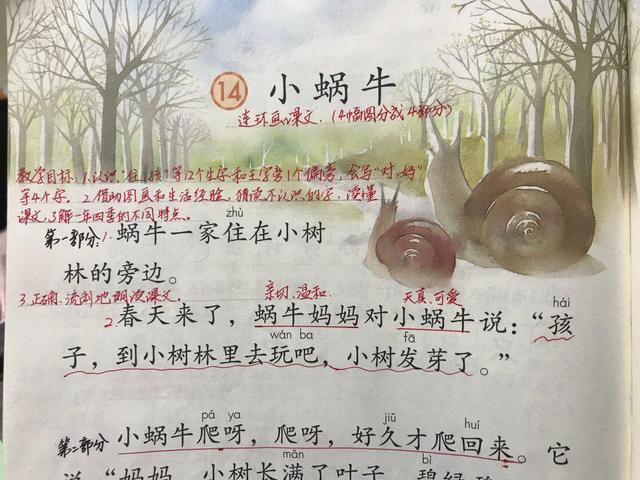 14 小蜗牛
连环画课文.(4幅图分成4部分)
教学目标:1.认识“住、孩”等12个生字和王字旁1个偏旁,会写“对、妈”
等4个字。2.借助图画和生活经验,猜读不认识的字,读懂
课文,了解一年四季的不同特点。
zhù
第一部分 1. 蜗牛一家住在小树
林的旁边。
3.正确.流利地朗读课文. 亲切.温和. 天真.可爱
hái
2.春天来了,蜗牛妈妈对小蜗牛说:“孩
wán ba fā
子,到小树林里去玩吧,小树发芽了。”
pá ya jiǔ huí
第二部分 小蜗牛爬呀,爬呀,好久才爬回来。它
mǎn bì
说:“妈妈,小树长满了叶子,碧绿